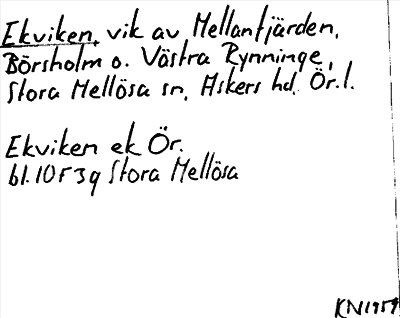 Ekviken, vik av Mellanfjärden,
Börsholm o. Västra Rynninge,
Stora Mellösa sn, Askers hd, Ör. l.
Ekviken ek Ör.
bl. 10F3g Stora Mellösa
KN1959